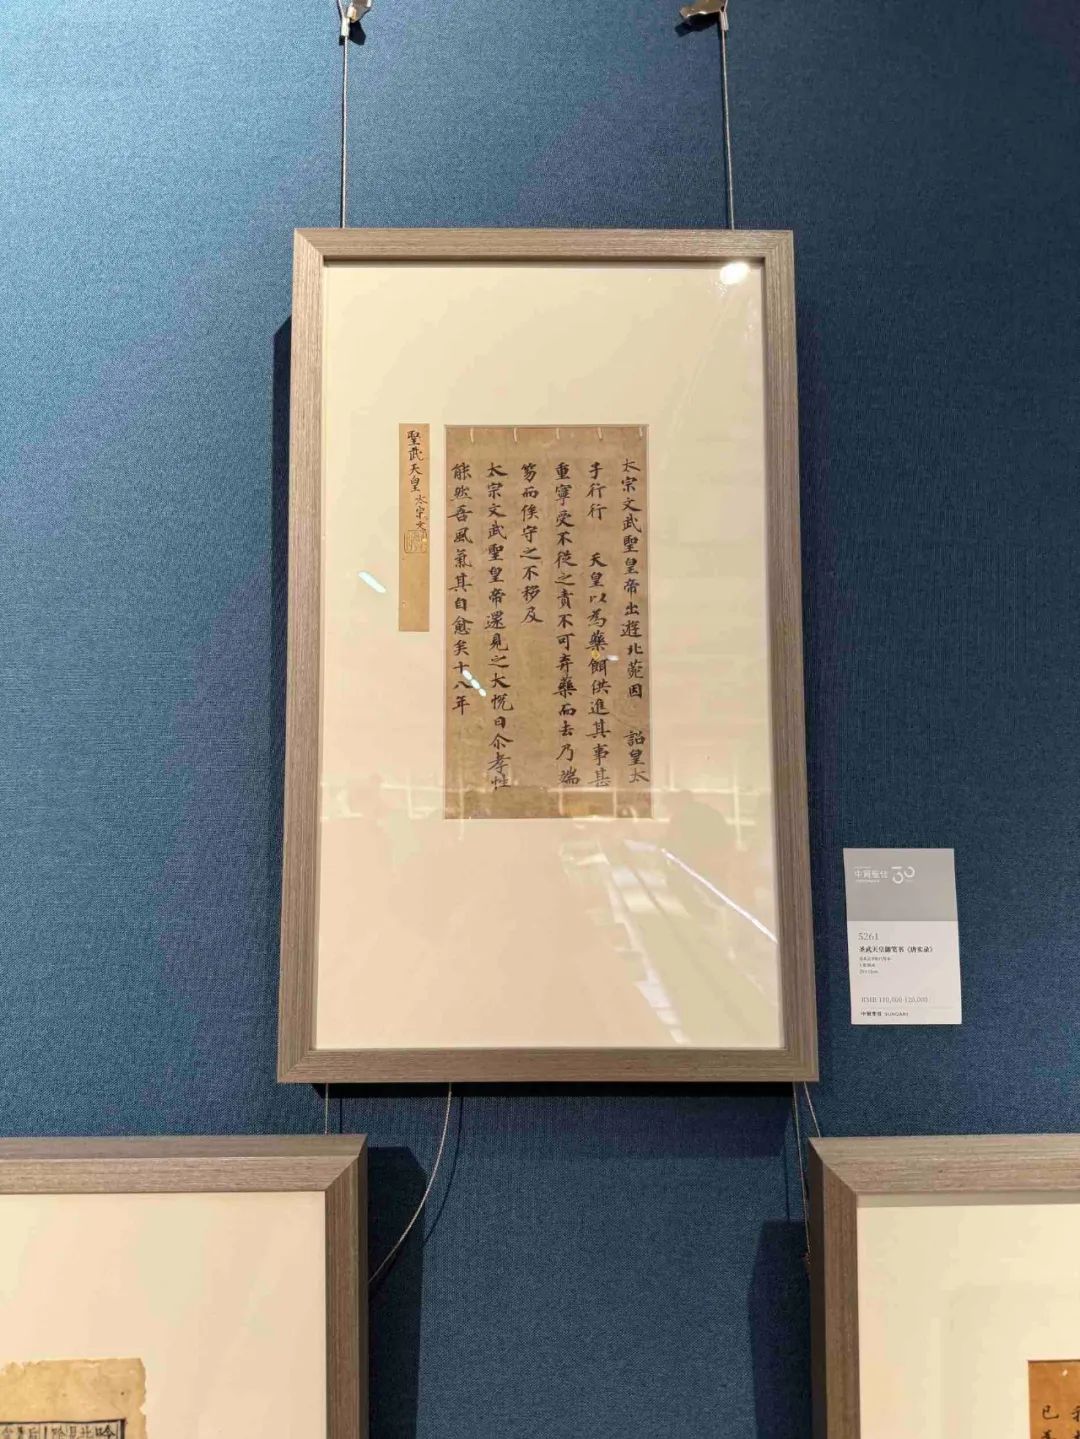 太宗文武聖皇帝出遊北苑因 詔皇太
子行行 天皇以為藥餌供進其事甚
重寧受不従之責不可弃藥而去乃端
笏而俟守之不移及
太宗文武聖皇帝還見之大悦曰尒孝性
能然吾風氣其自愈矣十八年
聖武天皇 太宗文
30
5261
圣武天皇随笔书《唐实录》
RMB 110,000-120,000
已